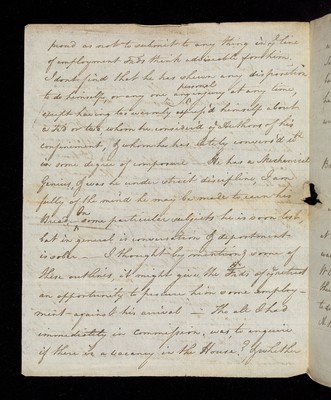 proud as not to submit to any thing in ye line
of employment Fds think adviseable for him,
I dont find that he has shewn any disposition
personal
to do himself, or any one injury at any time,
except having too warmly express'd himself about
a Fd or two whom he consider'd ye Authors of his
confinement, & of whom he has lately convers'd
in some degree of composure He has a Mechanical
Genius, & was he under strict discipline, I am
fully of the mind he may be made to earn his
Bread, On some particular subjects he is soon lost,
but in general is conversation & deportment
is sober — I thought by mentioning some of
these outlines, it might give the Fds of ye retreat
an opportunity to procure him some employ-
ment against his arrival — The all I had
immediately in Commission, was to enquire
if there is a vacancy in the House? & whether